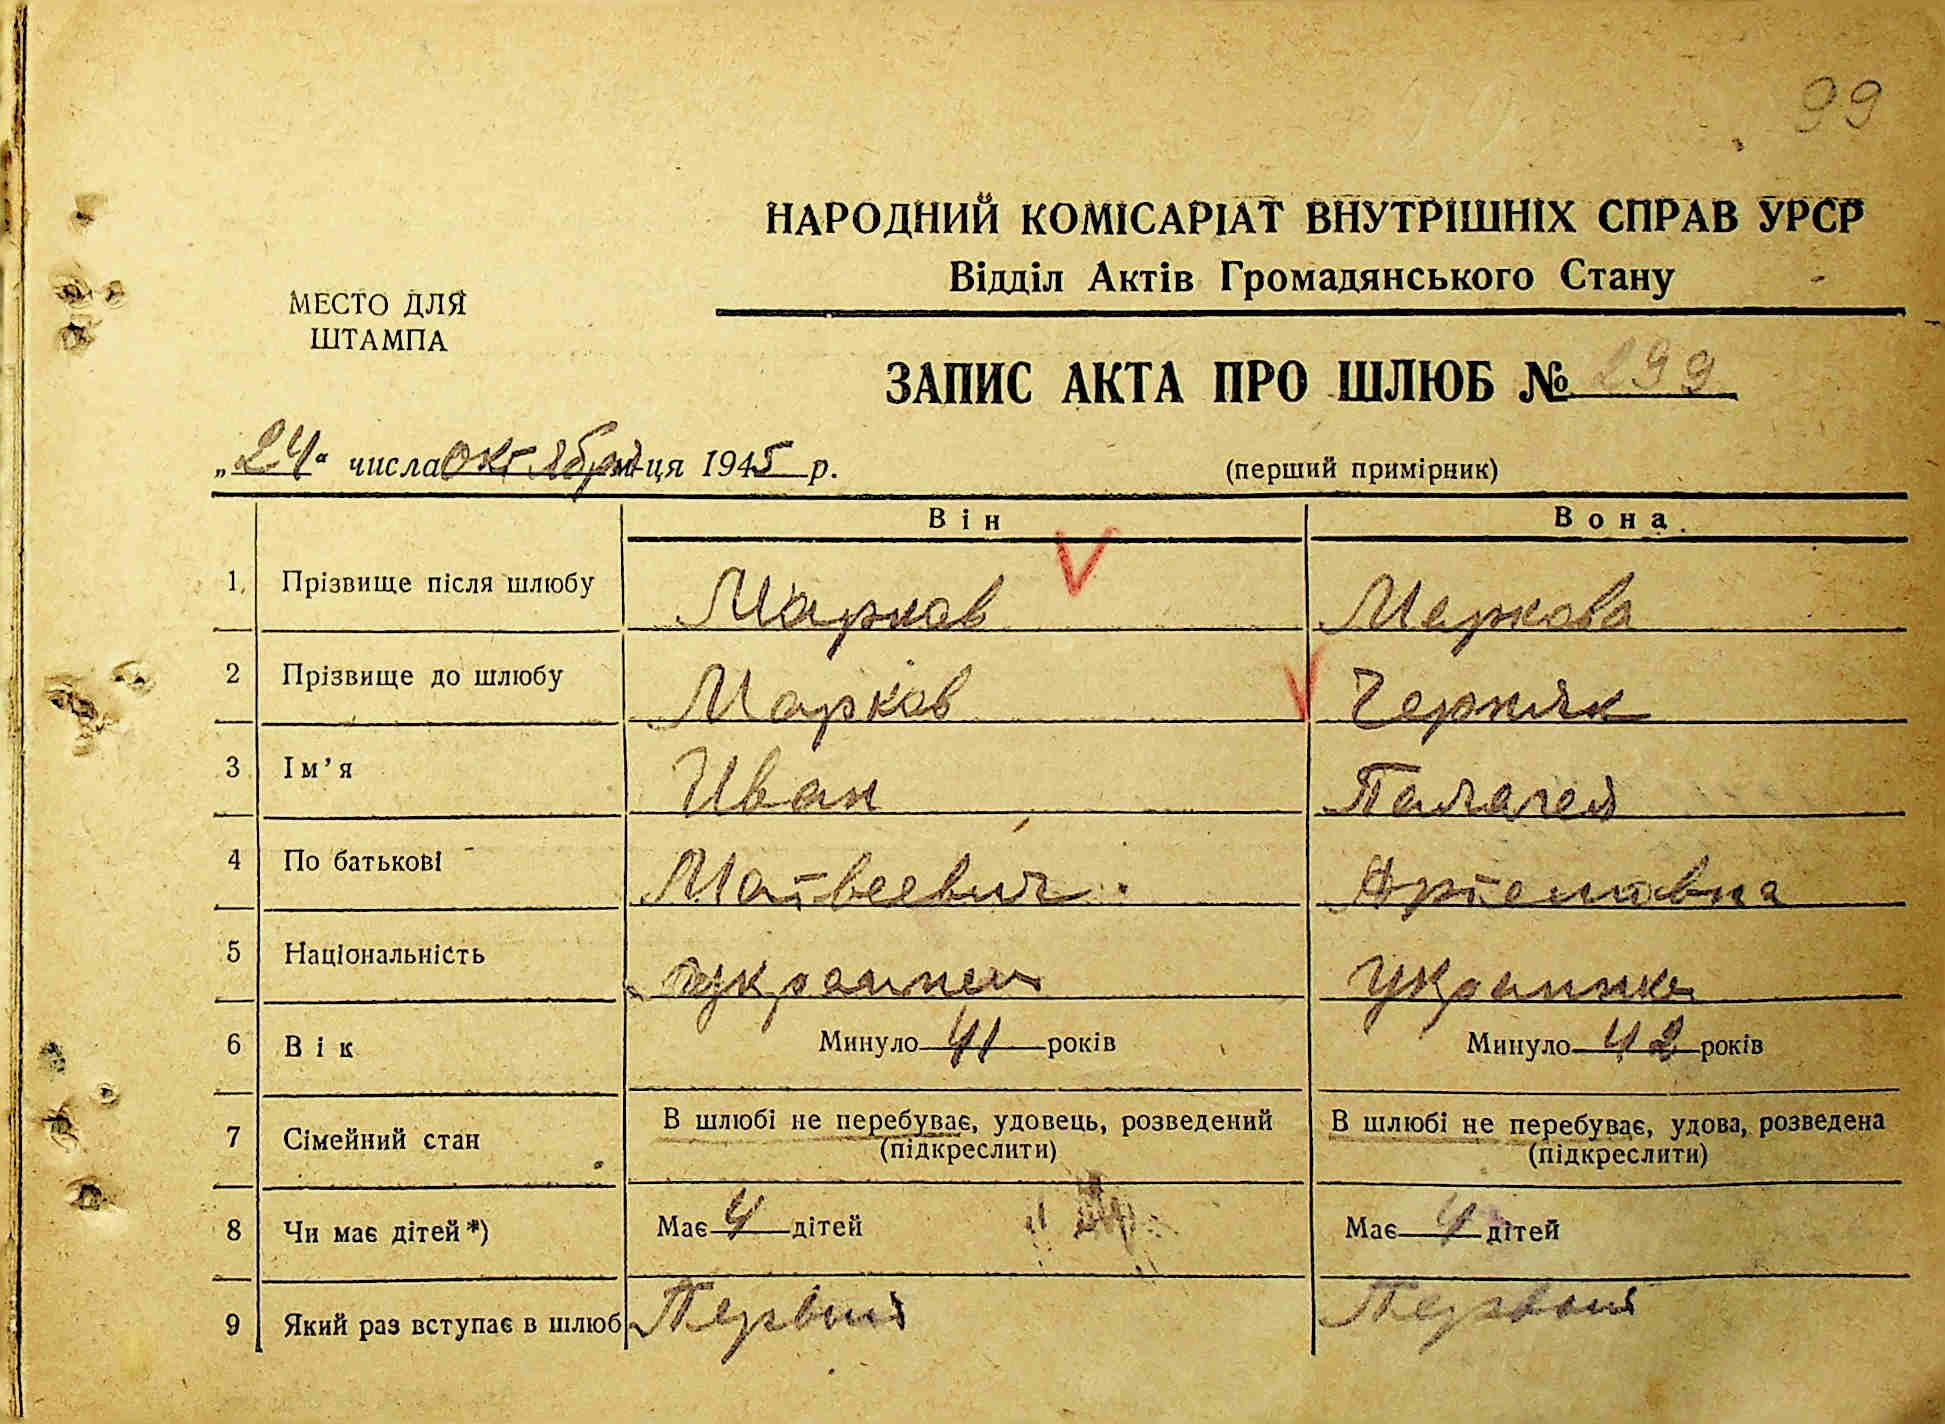 99
НАРОДНИЙ КОМІСАРІАТ ВНУТРІШНІХ СПРАВ УРСР
Відділ Актів Громадянського Стану
МЕСТО ДЛЯ
ШТАМПА
ЗАПИС АКТА ПРО ШЛЮБ № 299
„24“ числа октября м-ця 1945 р.
(перший примірник)
Він Вона
1. Прізвище після шлюбу Марков Маркова
2 Прізвище до шлюбу Марков Черняк
3 Ім’я Иван Палагея
4 По батькові Матвеевич Артемовна
5 Національність украинец украинка
6 Вік Минуло 41 років Минуло 42 років
7 Сімейний стан В шлюбі не перебуває, удовець, розведений В шлюбі не перебуває, удова, розведена
(підкреслити) (підкреслити)
8 Чи має дітей *) Має 4 дітей Має 4 дітей
9 Який раз вступає в шлюб Первый Первый